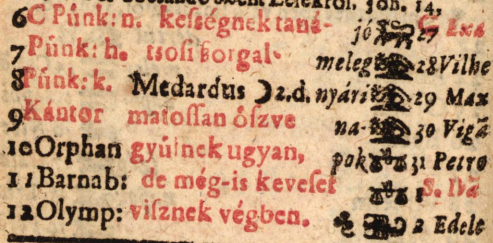 6 C Púnk: n. kességnek taná- jó 27
7 Púnk: h. tsosi szorgal- meleg 28 Vilhe
8 Púnk: k. Medardus ☽ 2.d. nyári 29 Max
9 Kántor matossan öszve na- 30 Vigă
10 Orphan gyűlnek ugyan, pok 31 Petro
11 Barnab: de még-is keveset 1
12 Olymp: visznek végben. 2 Edele